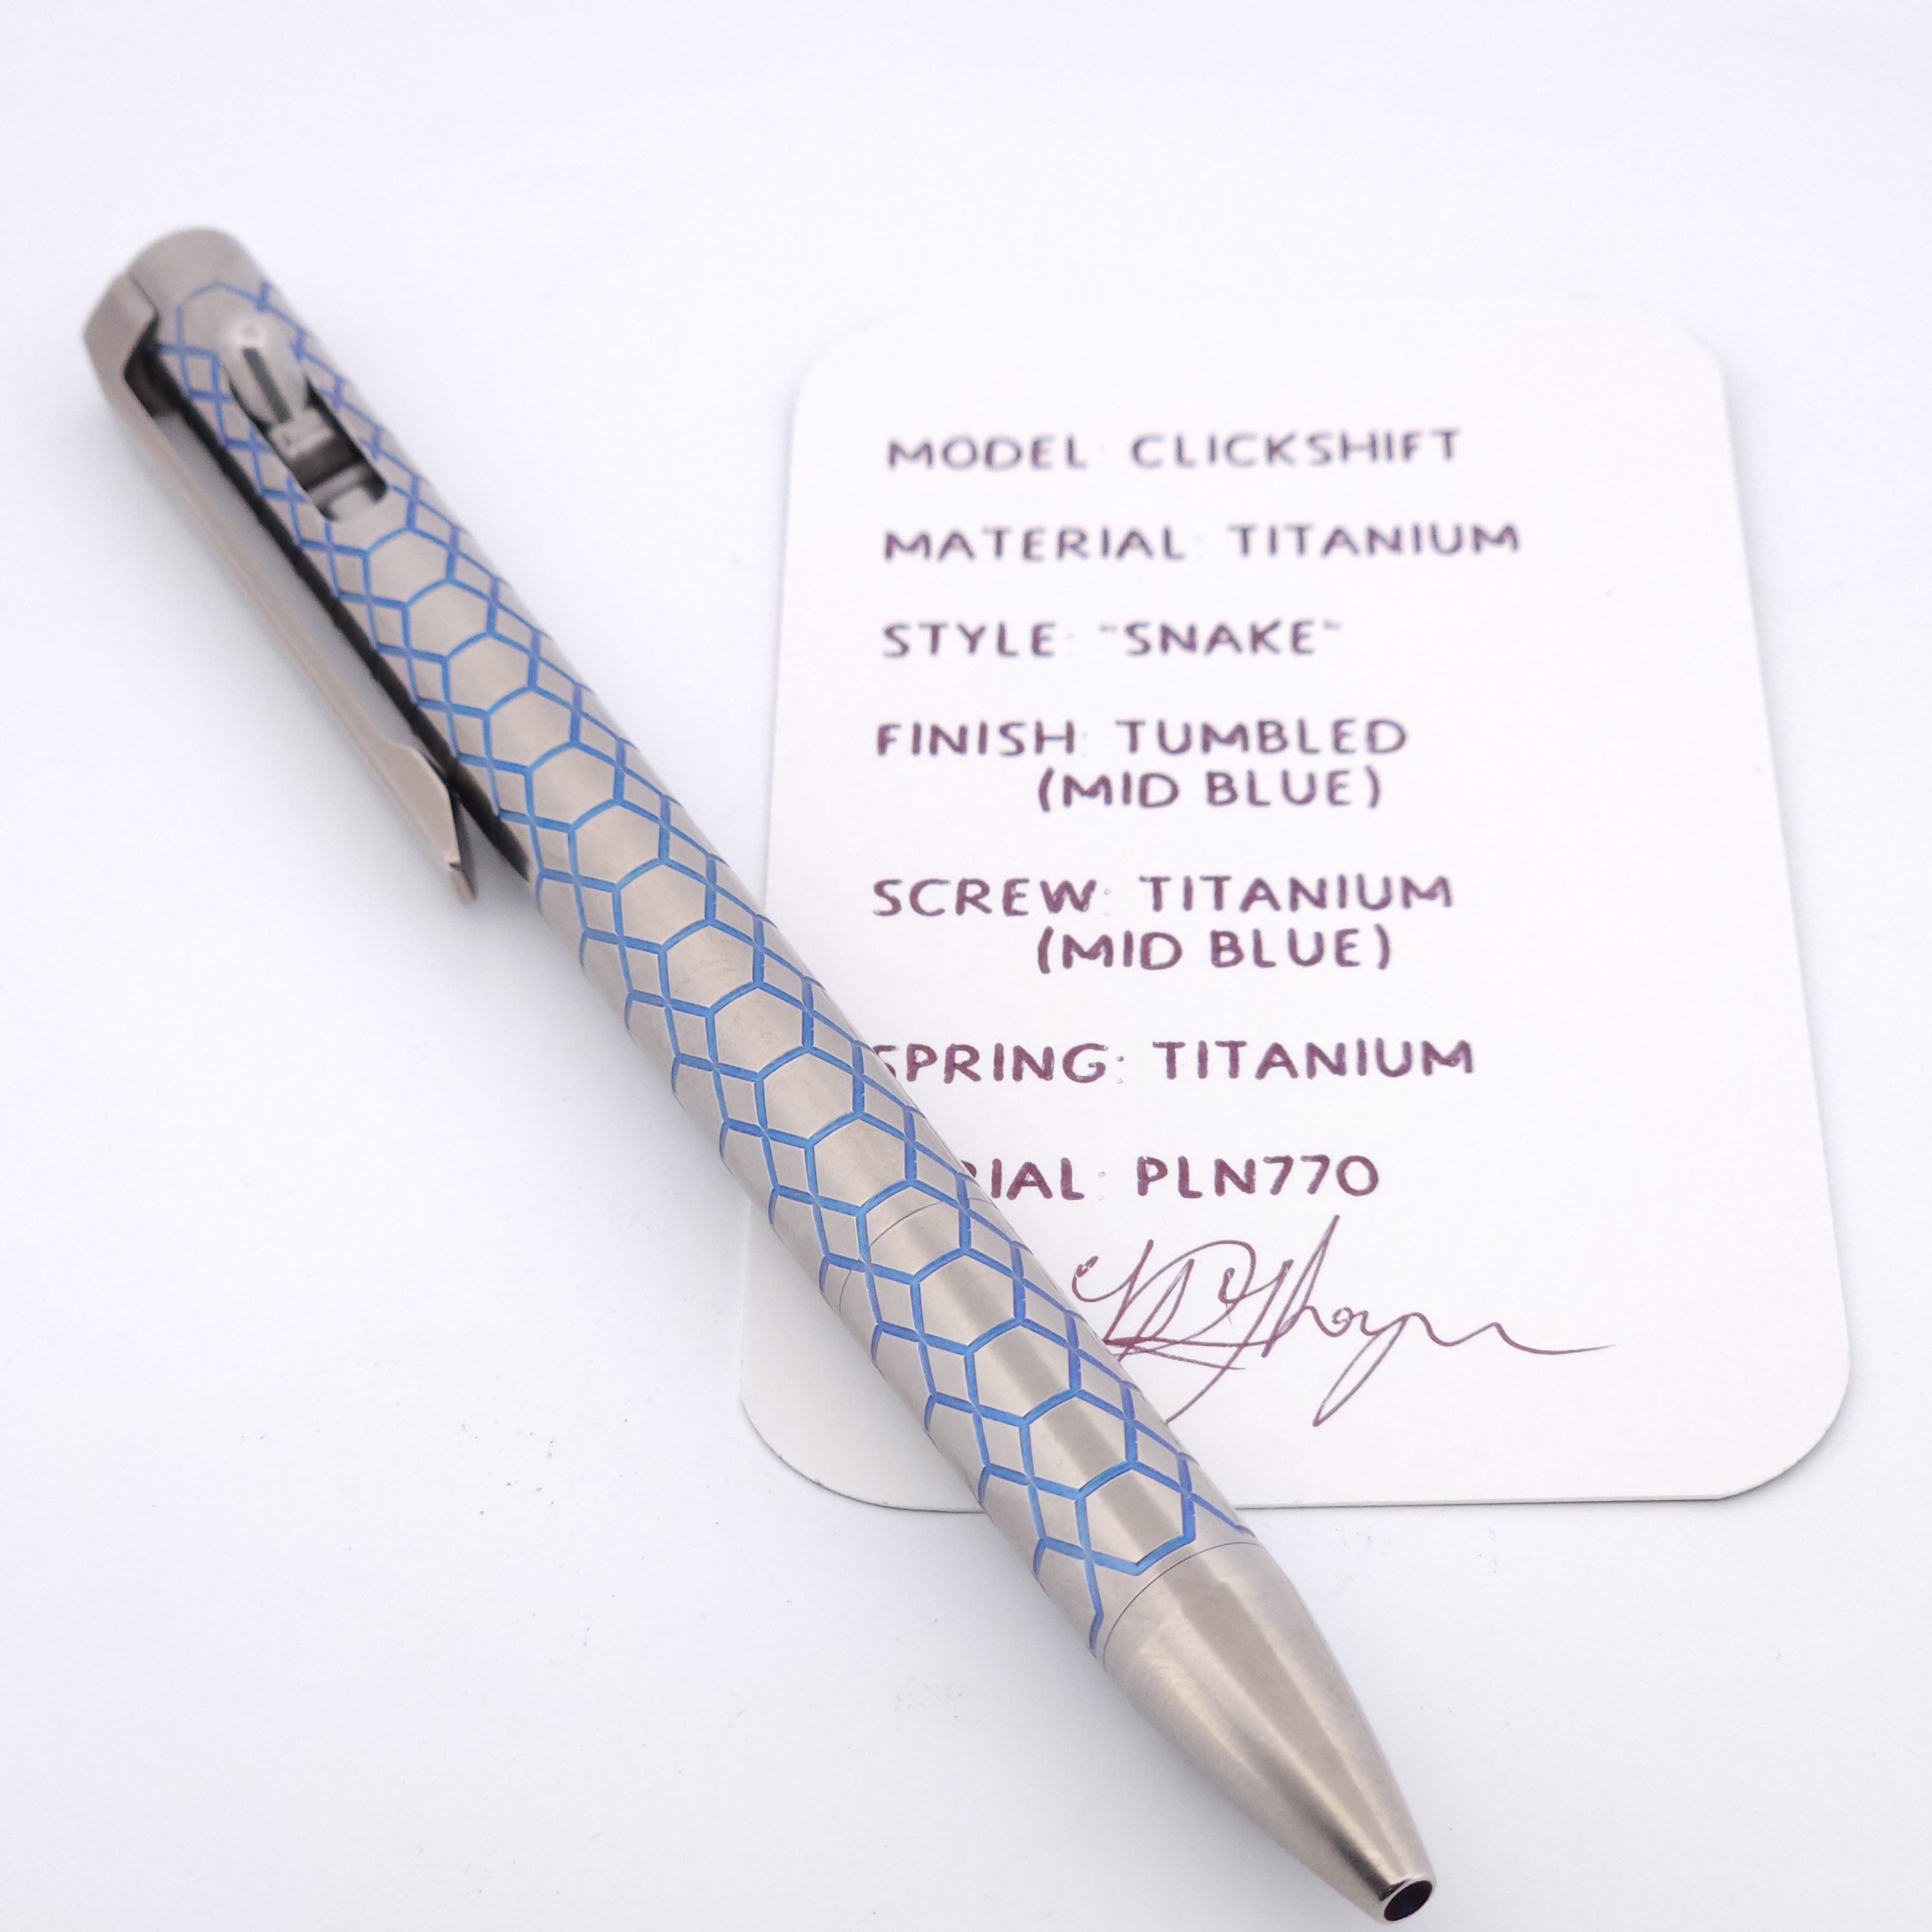 MODEL: CLICKSHIFT
MATERIAL: TITANIUM
STYLE: "SNAKE"
FINISH: TUMBLED
(MID BLUE)
SCREW: TITANIUM
(MID BLUE)
SPRING: TITANIUM
RIAL: PLN770